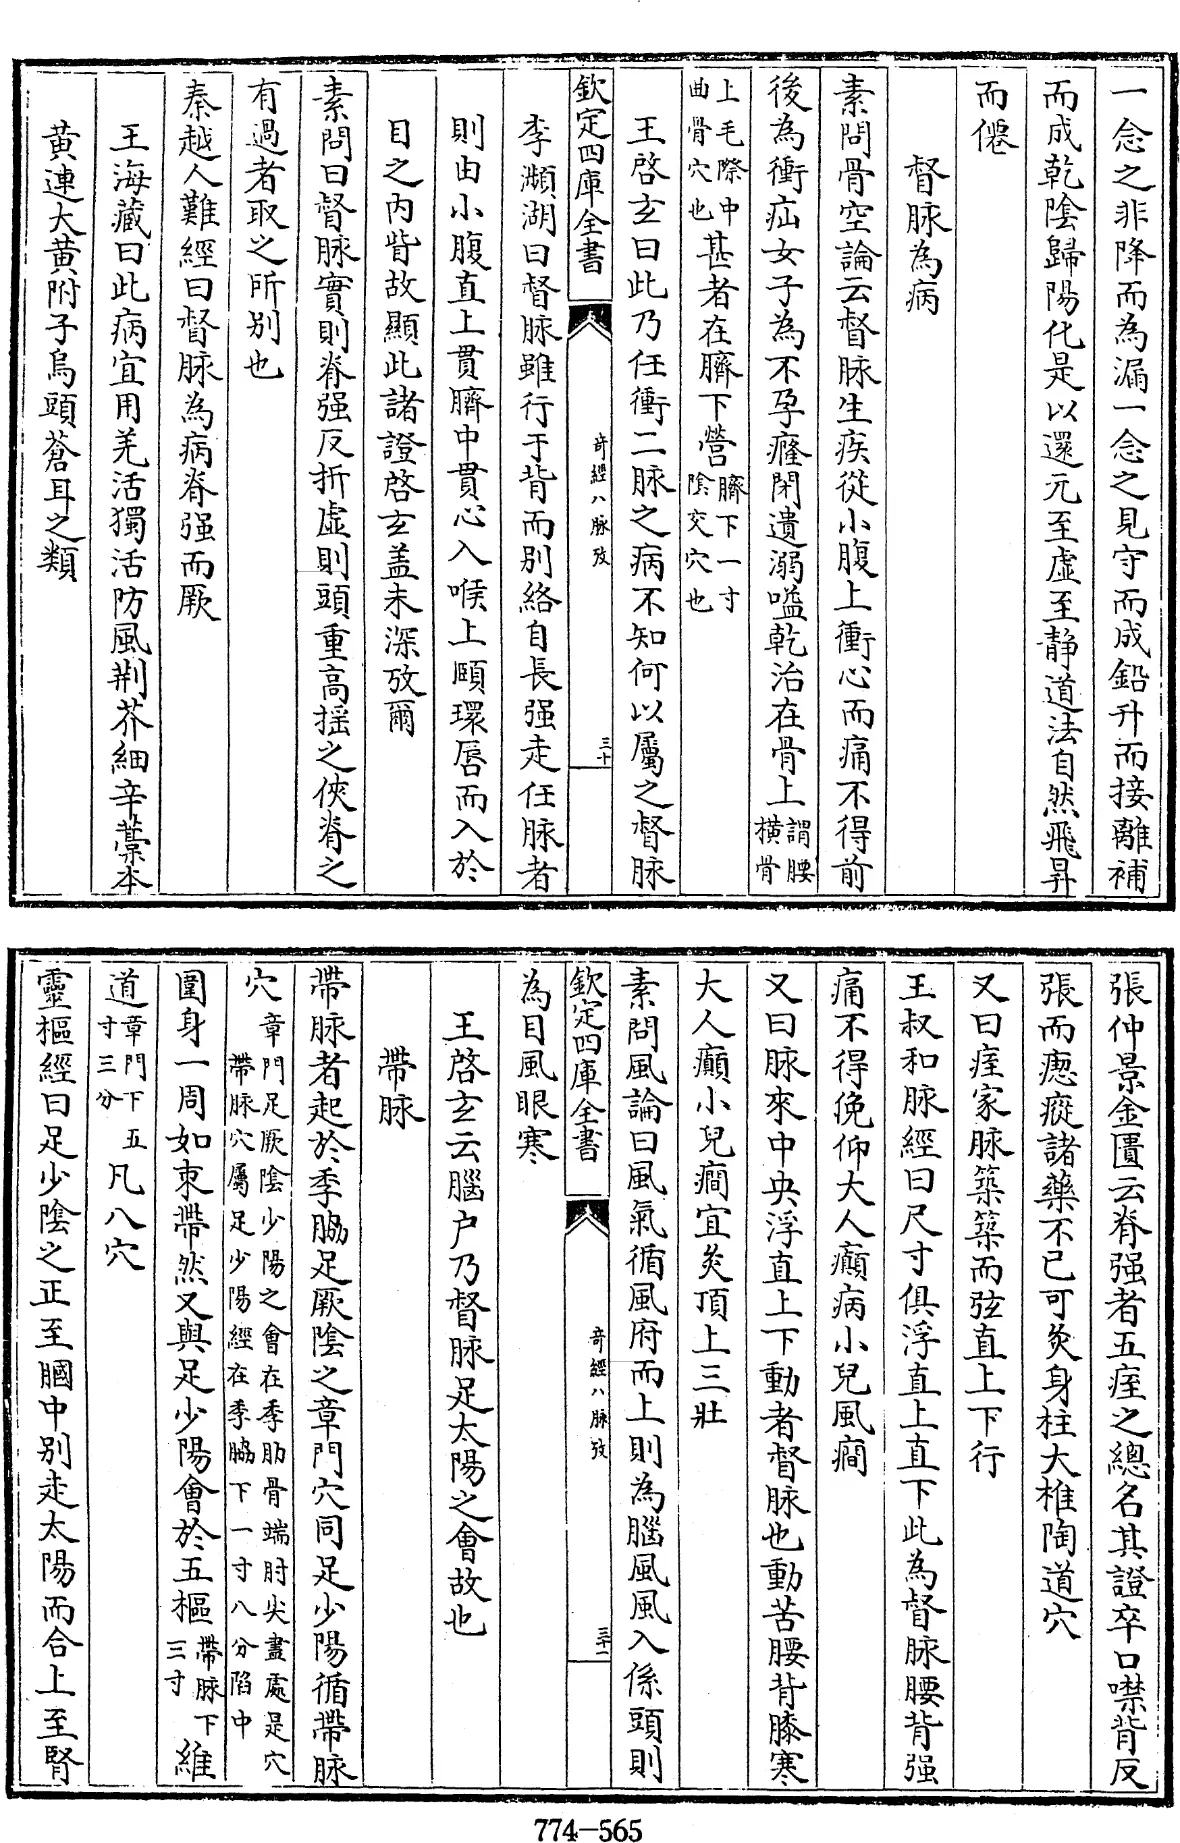 一念之非降而為漏一念之見守而成鉛升而接離補
而成乾陰歸陽化是以還元至虛至静道法自然飛昇
而僊
督脉為病
素問骨空論云督脉生疾從小腹上衝心而痛不得前
後為衝疝女子為不孕癃閉遺溺嗌乾治在骨上謂腰横骨
上毛際中曲骨穴也甚者在臍下營臍下一寸陰交穴也
王啓玄曰此乃任衝二脉之病不知何以屬之督脉
欽定四庫全書 奇經八脉攷 三十
李瀕湖曰督脉雖行于背而别絡自長强走任脉者
則由小腹直上貫臍中貫心入喉上頤環唇而入於
目之内眥故顯此諸證啓玄盖未深攷爾
素問曰督脉實則脊强反折虛則頭重高摇之俠脊之
有過者取之所别也
秦越人難經曰督脉為病脊强而厥
王海藏曰此病宜用羌活獨活防風荆芥細辛藁本
黄連大黄附子烏頭蒼耳之類
張仲景金匱云脊强者五痓之總名其證卒口噤背反
張而瘛瘲諸藥不已可灸身柱大椎陶道穴
又曰痓家脉築築而弦直上下行
王叔和脉經曰尺寸俱浮直上直下此為督脉腰背强
痛不得俛仰大人癲病小兒風癎
又曰脉來中央浮直上下動者督脉也動苦腰背膝寒
大人癲小兒癎宜灸頂上三壯
素問風論曰風氣循風府而上則為腦風風入係頭則
欽定四庫全書 奇經八脉攷 三十一
為目風眼寒
王啓玄云腦户乃督脉足太陽之會故也
帶脉
帶脉者起於季脇足厥陰之章門穴同足少陽循帶脉
穴章門足厥陰少陽之會在季肋骨端肘尖盡處是穴帶脉穴屬足少陽經在季脇下一寸八分陷中
圍身一周如束帶然又與足少陽會於五樞帶脉下三寸維
道章門下五寸三分凡八穴
靈樞經曰足少陰之正至膕中别走太陽而合上至腎
774-565